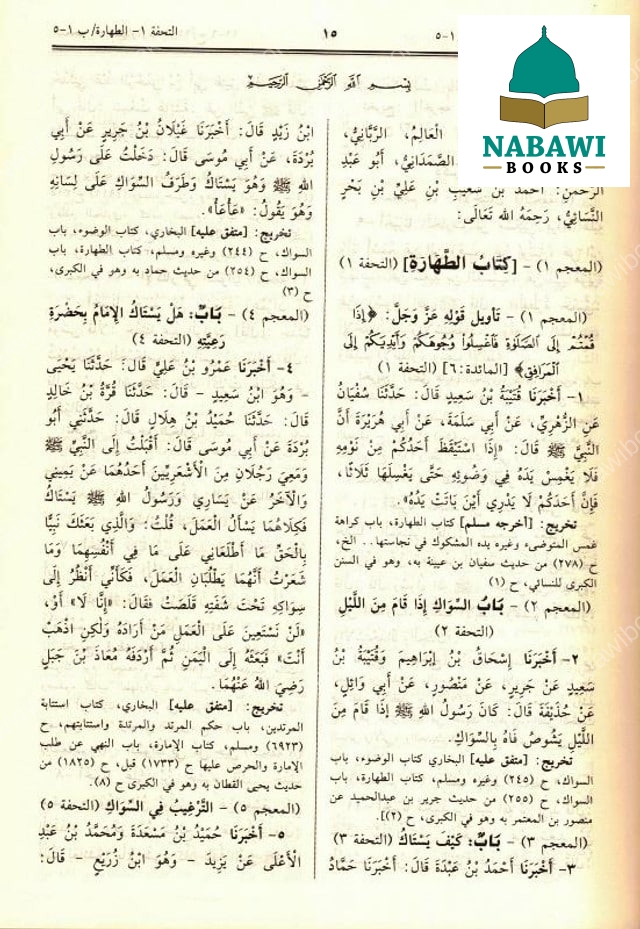 التحفة ١- الطهارة/ ب ١-٥
١٥
١-٥
NABAWI
BOOKS
بسم الله الرحمن الرحيم
العالِمُ، الرَّبَّانِيُّ،
الصَّمَدَانِيُّ، أَبُو عَبْدِ
الرَّحْمٰنِ: أَحْمَدُ بْنُ شُعَيْبِ بْنِ عَلِيِّ بْنِ بَحْرٍ
النَّسَائِيُّ، رَحِمَهُ الله تَعَالَى:
(المعجم ١) - [كِتَابُ الطَّهَارَةِ] (التحفة ١)
(المعجم ١) - تأويل قَوْلِهِ عَزَّ وَجَلَّ: ﴿إِذَا
قُمْتُمْ إِلَى ٱلصَّلَوٰةِ فَٱغْسِلُوا۟ وُجُوهَكُمْ وَأَيْدِيَكُمْ إِلَى
ٱلْمَرَافِقِ﴾ [المائدة:٦] (التحفة ١)
١- أَخْبَرَنَا قُتَيْبَةُ بْنُ سَعِيدٍ قَالَ: حَدَّثَنَا سُفْيَانُ
عَنِ الزُّهْرِيِّ، عَنْ أَبِي سَلَمَةَ، عَنْ أَبِي هُرَيْرَةَ أَنَّ
النَّبِيَّ ﷺ قَالَ: «إِذَا اسْتَيْقَظَ أَحَدُكُمْ مِنْ نَوْمِهِ
فَلَا يَغْمِسْ يَدَهُ فِي وَضُوئِهِ حَتَّى يَغْسِلَهَا ثَلَاثًا،
فَإِنَّ أَحَدَكُمْ لَا يَدْرِي أَيْنَ بَاتَتْ يَدُهُ».
تخريج: [أخرجه مسلم] كتاب الطهارة، باب كراهة
غمس المتوضىء وغيره يده المشكوك في نجاستها.. الخ،
ح (٢٧٨) من حديث سفيان بن عيينة به، وهو في السنن
الكبرى للنسائي، ح (١)
(المعجم ٢) - بَابُ السِّوَاكِ إِذَا قَامَ مِنَ اللَّيْلِ
(التحفة ٢)
٢- أَخْبَرَنَا إِسْحَاقُ بْنُ إِبْرَاهِيمَ وَقُتَيْبَةُ بْنُ
سَعِيدٍ عَنْ جَرِيرٍ، عَنْ مَنْصُورٍ، عَنْ أَبِي وَائِلٍ،
عَنْ حُذَيْفَةَ قَالَ: كَانَ رَسُولُ اللهِ ﷺ إِذَا قَامَ مِنَ
اللَّيْلِ يَشُوصُ فَاهُ بِالسِّوَاكِ.
تخريج: [متفق عليه] البخاري كتاب الوضوء، باب
السواك، ح (٢٤٥) وغيره ومسلم، كتاب الطهارة، باب
السواك، ح (٢٥٥) من حديث جرير بن عبدالحميد عن
منصور بن المعتمر به وهو في الكبرى، ح (٢)].
(المعجم ٣) - بَابٌ: كَيْفَ يَسْتَاكُ (التحفة ٣)
٣- أَخْبَرَنَا أَحْمَدُ بْنُ عَبْدَةَ قَالَ: أَخْبَرَنَا حَمَّادُ
ابْنُ زَيْدٍ قَالَ: أَخْبَرَنَا غَيْلَانُ بْنُ جَرِيرٍ عَنْ أَبِي
بُرْدَةَ، عَنْ أَبِي مُوسَى قَالَ: دَخَلْتُ عَلَى رَسُولِ
اللهِ ﷺ وَهُوَ يَسْتَاكُ وَطَرَفُ السِّوَاكِ عَلَى لِسَانِهِ
وَهُوَ يَقُولُ: «عَأْعَأْ».
تخريج: [متفق عليه] البخاري، كتاب الوضوء، باب
السواك، ح (٢٤٤) وغيره ومسلم، كتاب الطهارة، باب
السواك، ح (٢٥٤) من حديث حماد به وهو في الكبرى،
ح (٣)
(المعجم ٤) - بَابٌ: هَلْ يَسْتَاكُ الْإِمَامُ بِحَضْرَةِ
رَعِيَّتِهِ (التحفة ٤)
٤- أَخْبَرَنَا عَمْرُو بْنُ عَلِيٍّ قَالَ: حَدَّثَنَا يَحْيَى
- وَهُوَ ابْنُ سَعِيدٍ - قَالَ: حَدَّثَنَا قُرَّةُ بْنُ خَالِدٍ
قَالَ: حَدَّثَنَا حُمَيْدُ بْنُ هِلَالٍ قَالَ: حَدَّثَنِي أَبُو
بُرْدَةَ عَنْ أَبِي مُوسَى قَالَ: أَقْبَلْتُ إِلَى النَّبِيِّ ﷺ
وَمَعِيَ رَجُلَانِ مِنَ الْأَشْعَرِيِّينَ أَحَدُهُمَا عَنْ يَمِينِي
وَالْآخَرُ عَنْ يَسَارِي وَرَسُولُ اللهِ ﷺ يَسْتَاكُ
فَكِلَاهُمَا يَسْأَلُ الْعَمَلَ، قُلْتُ: وَالَّذِي بَعَثَكَ نَبِيًّا
بِالْحَقِّ مَا أَطْلَعَانِي عَلَى مَا فِي أَنْفُسِهِمَا وَمَا
شَعَرْتُ أَنَّهُمَا يَطْلُبَانِ الْعَمَلَ، فَكَأَنِّي أَنْظُرُ إِلَى
سِوَاكِهِ تَحْتَ شَفَتِهِ قَلَصَتْ فَقَالَ: «إِنَّا لَا» أَوْ،
«لَنْ نَسْتَعِينَ عَلَى الْعَمَلِ مَنْ أَرَادَهُ وَلٰكِنِ اذْهَبْ
أَنْتَ» فَبَعَثَهُ إِلَى الْيَمَنِ ثُمَّ أَرْدَفَهُ مُعَاذَ بْنَ جَبَلٍ
رَضِيَ اللهُ عَنْهُمَا.
تخريج: [متفق عليه] البخاري، كتاب استتابة
المرتدين، باب حكم المرتد والمرتدة واستتابتهم، ح
(٦٩٢٣) ومسلم، كتاب الإمارة، باب النهي عن طلب
الإمارة والحرص عليها ح (١٧٣٣) قبل، ح (١٨٢٥) من
حديث يحيى القطان به وهو في الكبرى ح (٨).
(المعجم ٥) - التَّرْغِيبُ فِي السِّوَاكِ (التحفة ٥)
٥- أَخْبَرَنَا حُمَيْدُ بْنُ مَسْعَدَةَ وَمُحَمَّدُ بْنُ عَبْدِ
الْأَعْلَى عَنْ يَزِيدَ - وَهُوَ ابْنُ زُرَيْعٍ - قَالَ: